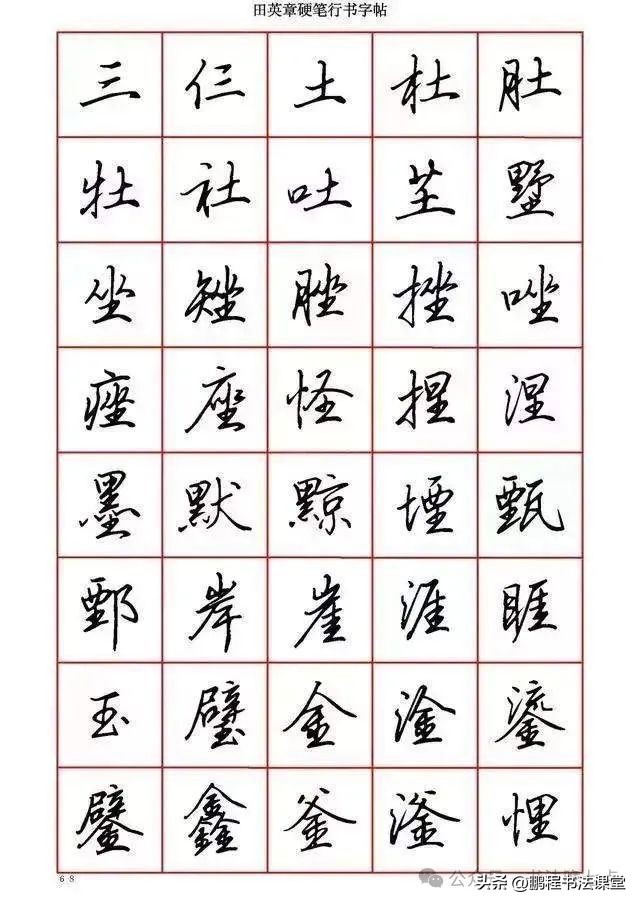 田英章硬笔行书字帖
三 仨 土 杜 肚
牡 社 吐 芏 墅
坐 矬 脞 挫 唑
痤 座 怪 捏 涅
墨 默 黥 堙 甄
鄄 岸 崖 涯 睚
玉 璧 金 淦 鎏
鐾 鑫 釜 滏 悝
68
头条@鹏程书法课堂